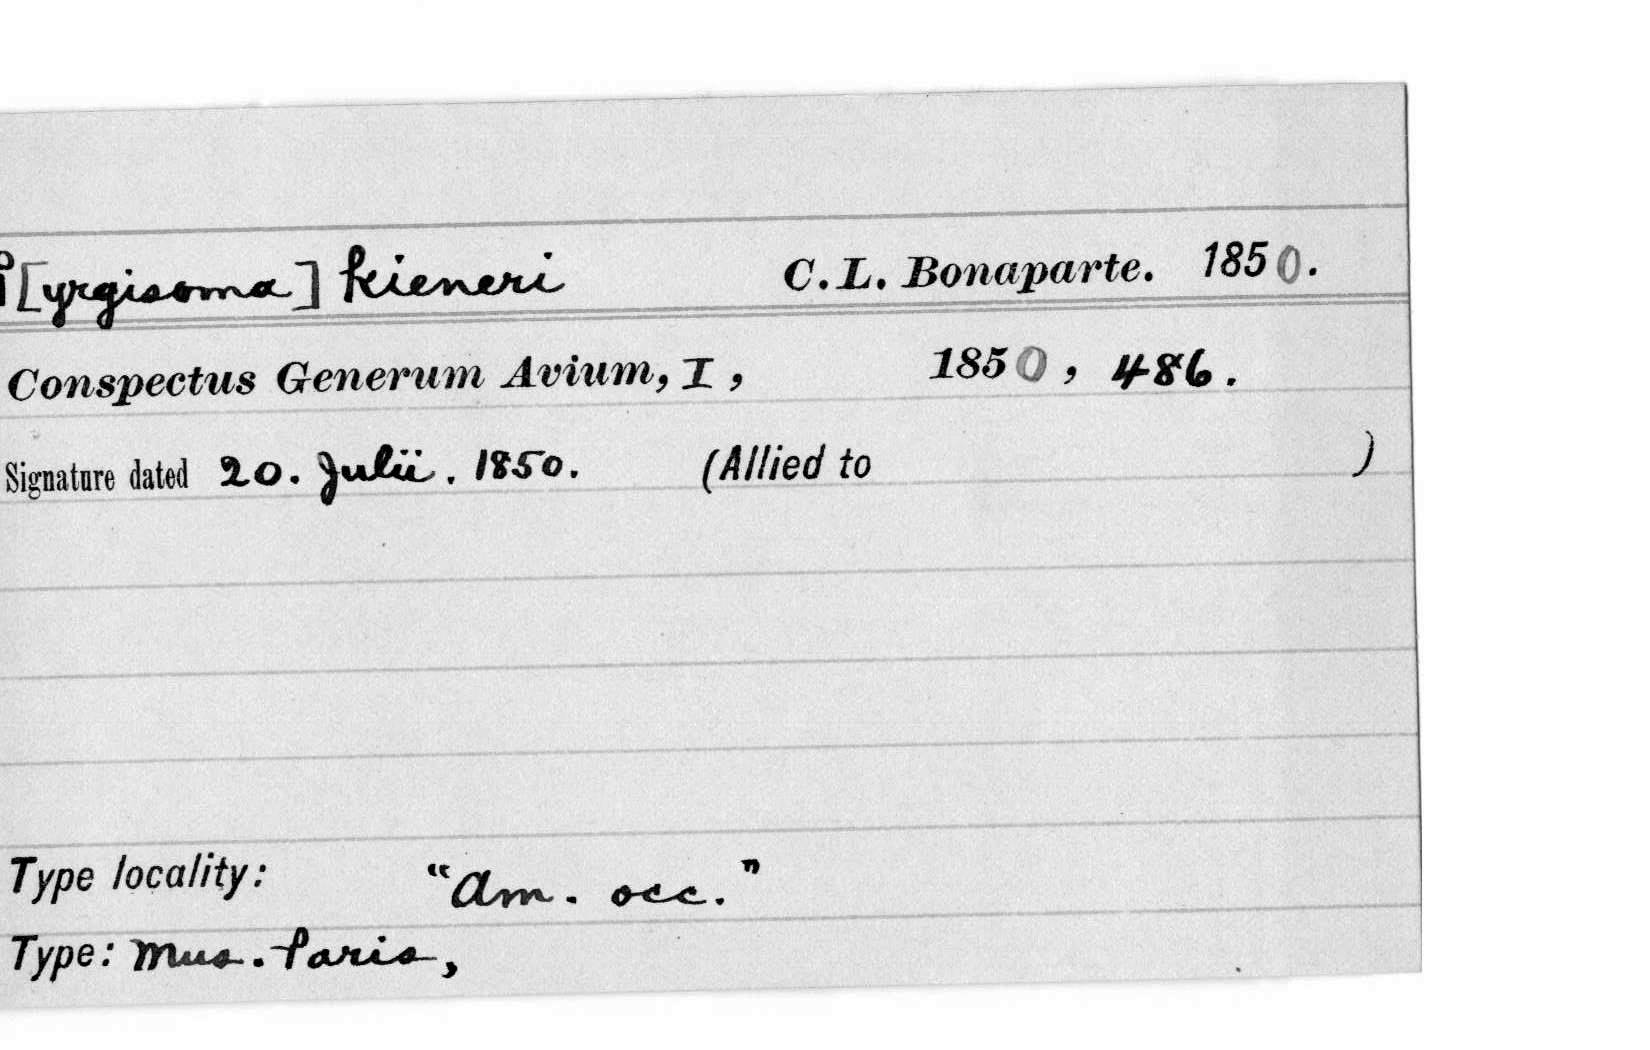 P[yrgisoma] kieneri C. L. Bonaparte. 1850.
Conspectus Generum Avium, I, 1850, 486.
Signature dated 20. Julii. 1850. (Allied to )
Type locality: "Am. occ."
Type: Mus. Paris,